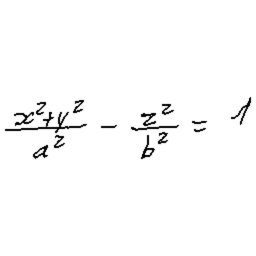 \frac{x^2+y^2}{a^2} - \frac{z^2}{b^2} = 1